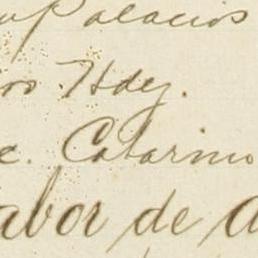 Palacios
Hdez.
c. Catarino
abor de